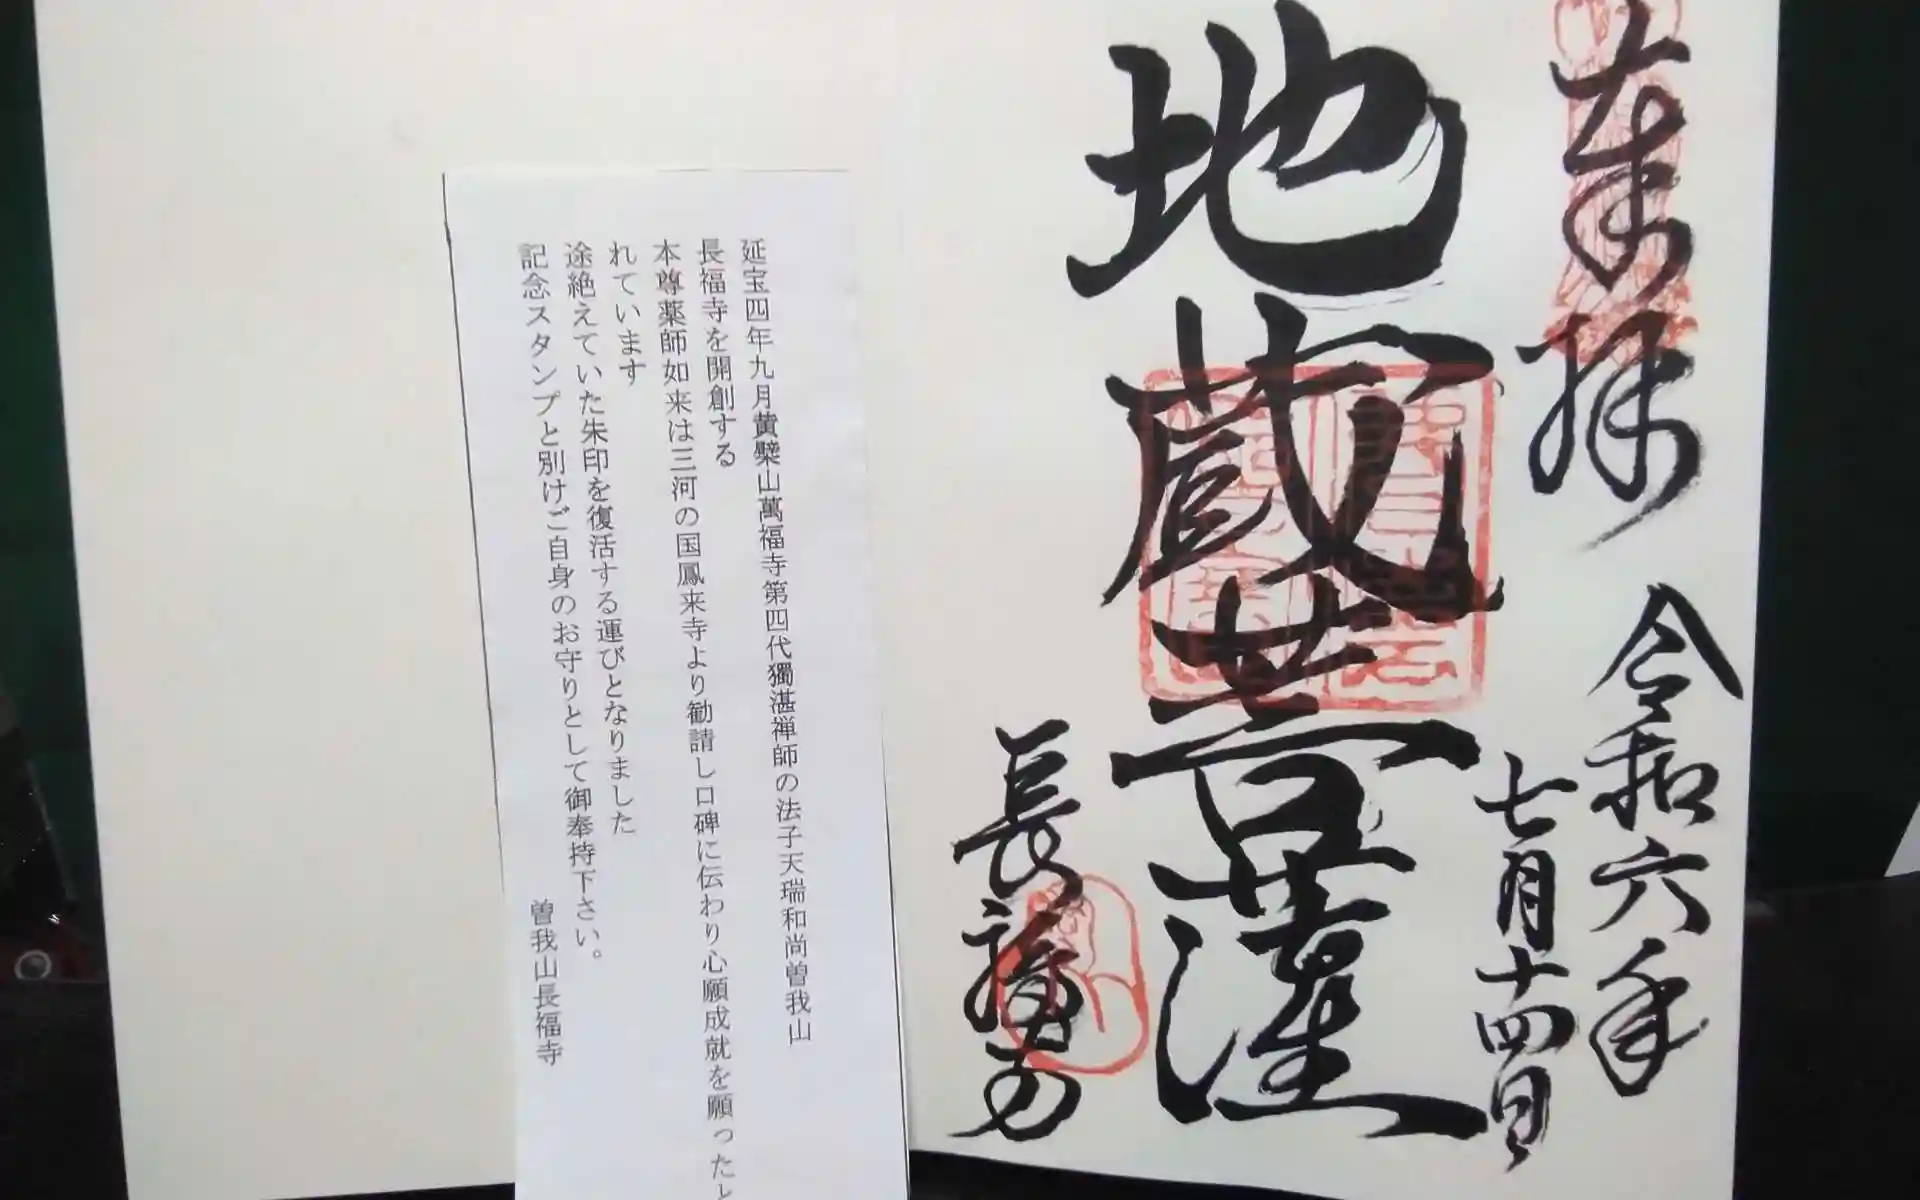 奉拝
令和六年
七月十四日
地蔵菩薩
長福寺
延宝四年九月黄檗山萬福寺第四代獨湛禅師の法子天瑞和尚曽我山
長福寺を開創する
本尊薬師如来は三河の国鳳来寺より勧請し口碑に伝わり心願成就を願ったと
れています
途絶えていた朱印を復活する運びとなりました
記念スタンプと別けご自身のお守りとして御奉持下さい。
曽我山長福寺